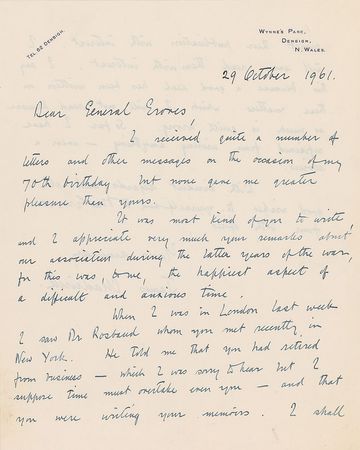 TEL 62 DENBIGH.
WYNNE'S PARK,
DENBIGH,
N. WALES.
29 October 1961.
Dear General Groves,
I received quite a number of
letters and other messages on the occasion of my
70th birthday but none gave me greater
pleasure than yours.
It was most kind of you to write,
and I appreciate very much your remarks about
our association during the latter years of the war,
for this was, to me, the happiest aspect of
a difficult and anxious time.
When I was in London last week
I saw Dr Rosbaud whom you met recently in
New York. He told me that you had retired
from business — which I was sorry to hear but I
suppose time must overtake even you — and that
you were writing your memoirs. I shall